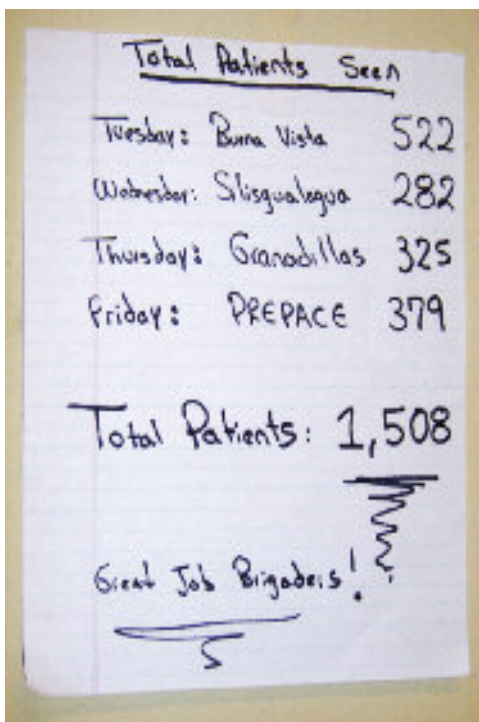 Total Patients Seen
Tuesday: Buena Vista 522
Wednesday: Slisgualagua 282
Thursday: Granadillas 325
Friday: PREPACE 379
Total Patients: 1,508
Great Job Brigaders!